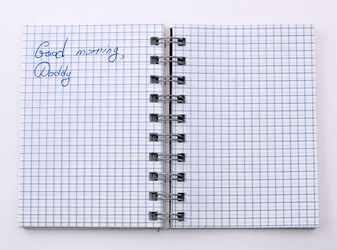 Good morning,
Daddy